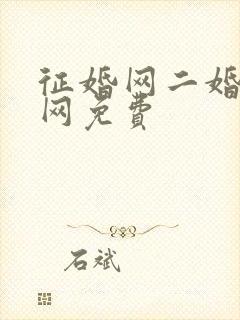 征婚网二婚
网免费
石斌